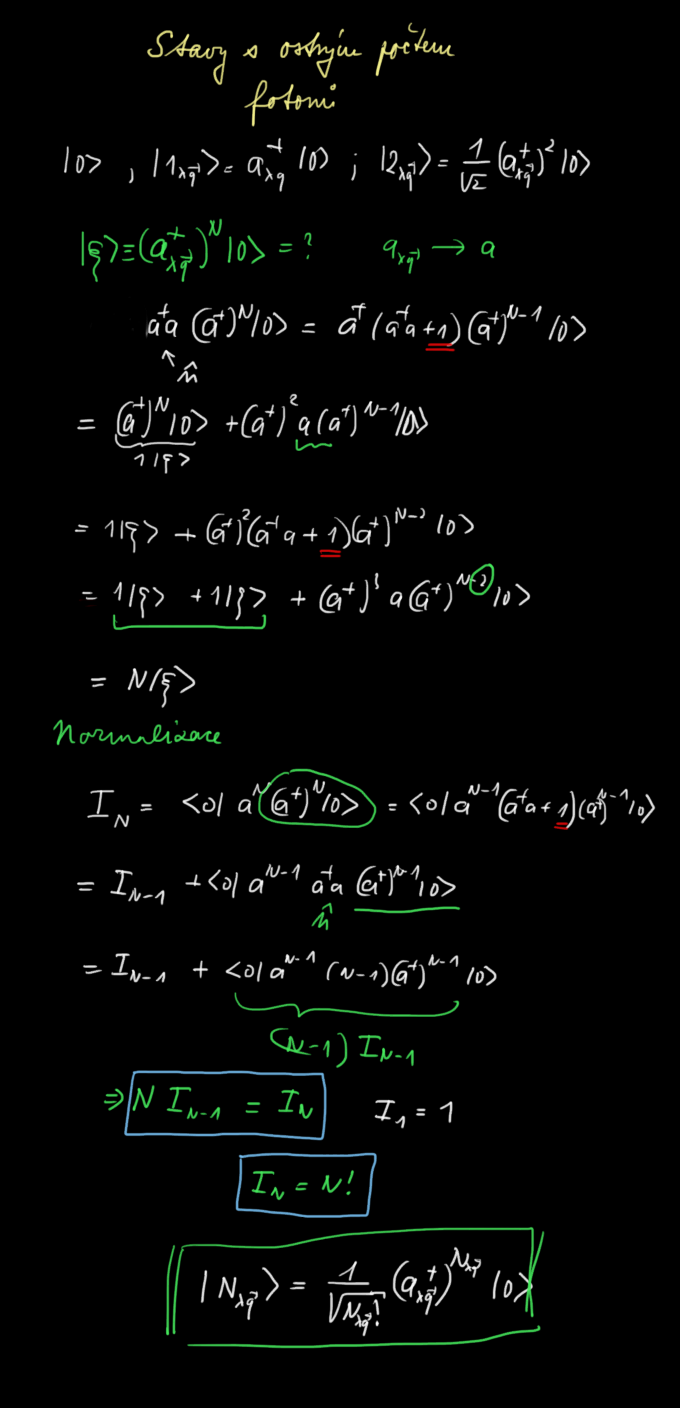 Stavy s ostrým počtem
fotonů
|0> , |1_{λq⃗}> = a⁺_{λq} |0> ; |2_{λq⃗}> = 1/√2 (a⁺_{λq⃗})² |0>
|ξ> ≡ (a⁺_{λq⃗})^N |0> = ? a_{λq⃗} → a
a⁺a (a⁺)^N |0> = a⁺ (a⁺a + 1)(a⁺)^{N-1} |0>
n̂
= (a⁺)^N |0> + (a⁺)² a (a⁺)^{N-1} |0>
1|ξ>
= 1|ξ> + (a⁺)² (a⁺a + 1)(a⁺)^{N-2} |0>
= 1|ξ> + 1|ξ> + (a⁺)³ a (a⁺)^{N-2} |0>
= N|ξ>
Normalizace
I_N = <0| a^N (a⁺)^N |0> = <0| a^{N-1} (a⁺a + 1)(a⁺)^{N-1} |0>
= I_{N-1} + <0| a^{N-1} a⁺a (a⁺)^{N-1} |0>
n̂
= I_{N-1} + <0| a^{N-1} (N-1)(a⁺)^{N-1} |0>
(N-1) I_{N-1}
⇒ N I_{N-1} = I_N I_1 = 1
I_N = N!
|N_{λq⃗}> = 1/√(N_{λq⃗}!) (a⁺_{λq⃗})^{N_{λq⃗}} |0>